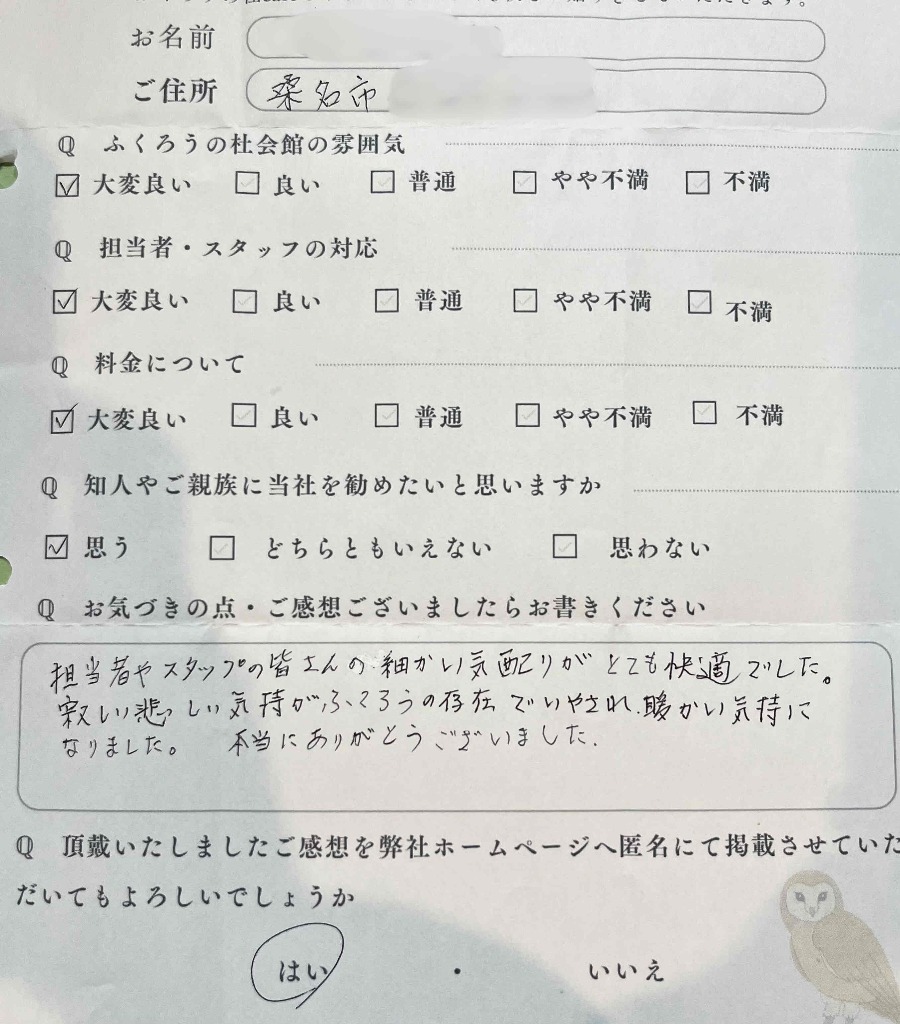 お名前
ご住所 桑名市
Q ふくろうの杜会館の雰囲気
☑ 大変良い □ 良い □ 普通 □ やや不満 □ 不満
Q 担当者・スタッフの対応
☑ 大変良い □ 良い □ 普通 □ やや不満 □ 不満
Q 料金について
☑ 大変良い □ 良い □ 普通 □ やや不満 □ 不満
Q 知人やご親族に当社を勧めたいと思いますか
☑ 思う □ どちらともいえない □ 思わない
Q お気づきの点・ご感想ございましたらお書きください
担当者やスタップの皆さんの細かい気配りがとても快適でした。
寂しい悲しい気持がふくろうの存在でいやされ、暖かい気持に
なりました。 本当にありがとうございました。
Q 頂戴いたしましたご感想を弊社ホームページへ匿名にて掲載させていた
だいてもよろしいでしょうか
はい ・ いいえ